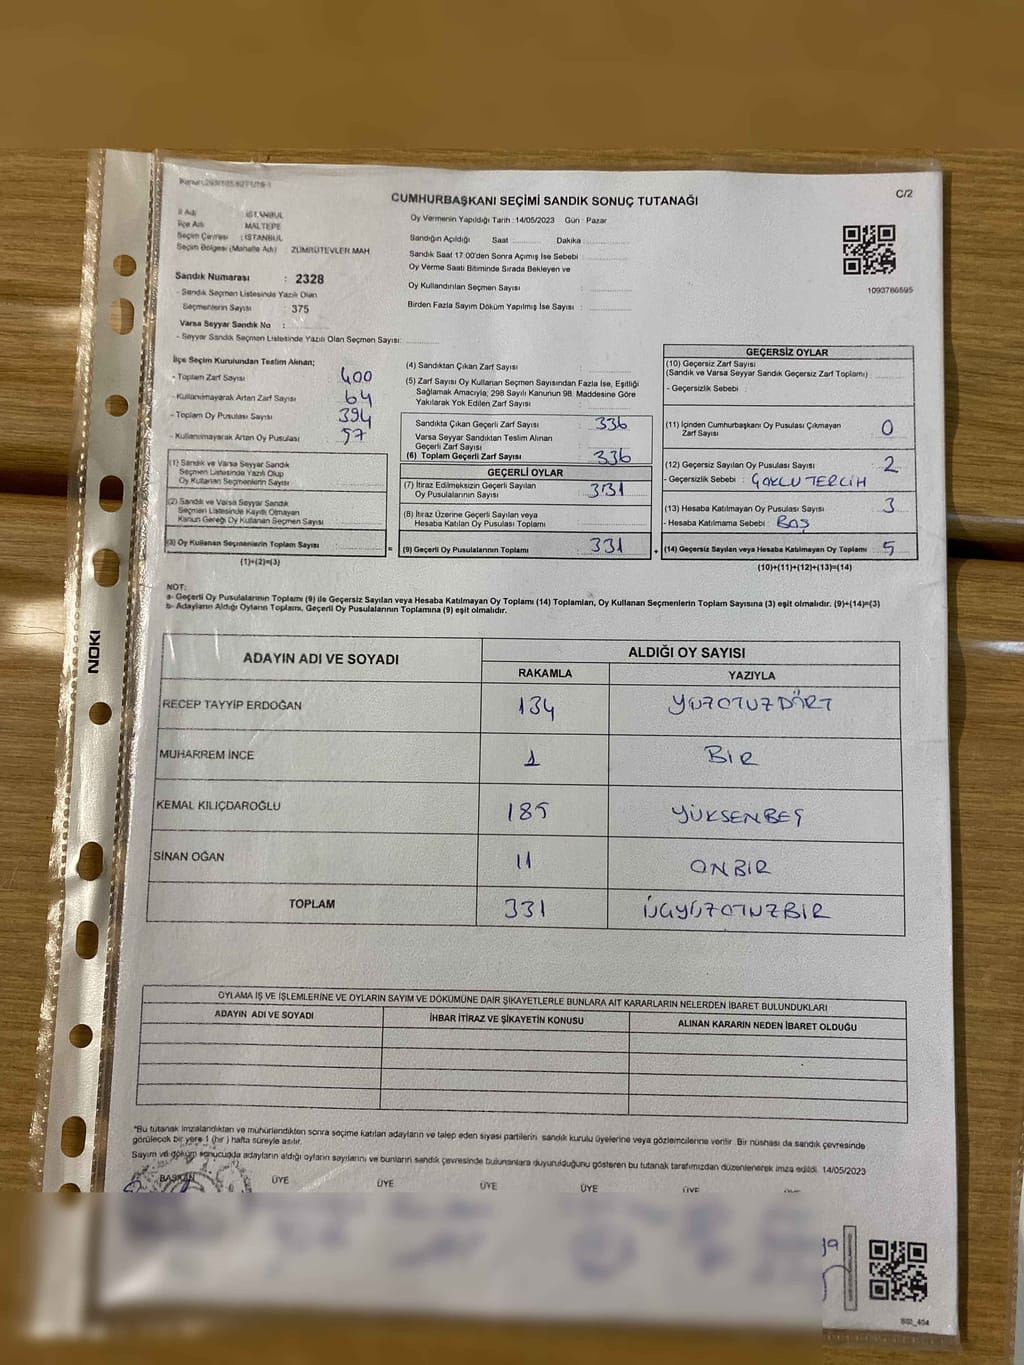 C/2
CUMHURBAŞKANI SEÇİMİ SANDIK SONUÇ TUTANAĞI
İl Adı : İSTANBUL
İlçe Adı : MALTEPE
Seçim Çevresi : İSTANBUL
Seçim Bölgesi (Mahalle Adı) : ZÜMRÜTEVLER MAH
Sandık Numarası : 2328
- Sandık Seçmen Listesinde Yazılı Olan
Seçmenlerin Sayısı : 375
Varsa Seyyar Sandık No :
- Seyyar Sandık Seçmen Listesinde Yazılı Olan Seçmen Sayısı:
Oy Vermenin Yapıldığı Tarih : 14/05/2023 Gün : Pazar
Sandığın Açıldığı Saat Dakika :
Sandık Saat 17.00'den Sonra Açılmış İse Sebebi :
Oy Verme Saati Bitiminde Sırada Bekleyen ve
Oy Kullandırılan Seçmen Sayısı :
Birden Fazla Sayım Döküm Yapılmış İse Sayısı :
1093766595
İlçe Seçim Kurulundan Teslim Alınan;
- Toplam Zarf Sayısı 400
- Kullanılmayarak Artan Zarf Sayısı 64
- Toplam Oy Pusulası Sayısı 394
- Kullanılmayarak Artan Oy Pusulası 57
(1) Sandık ve Varsa Seyyar Sandık
Seçmen Listesinde Yazılı Olup
Oy Kullanan Seçmenlerin Sayısı
(2) Sandık ve Varsa Seyyar Sandık
Seçmen Listesinde Kayıtlı Olmayan
Kanun Gereği Oy Kullanan Seçmen Sayısı
(3) Oy Kullanan Seçmenlerin Toplam Sayısı
(1)+(2)=(3)
(4) Sandıktan Çıkan Zarf Sayısı :
(5) Zarf Sayısı Oy Kullanan Seçmen Sayısından Fazla İse, Eşitliği
Sağlamak Amacıyla; 298 Sayılı Kanunun 98. Maddesine Göre
Yakılarak Yok Edilen Zarf Sayısı :
Sandıkta Çıkan Geçerli Zarf Sayısı : 336
Varsa Seyyar Sandıktan Teslim Alınan
Geçerli Zarf Sayısı :
(6) Toplam Geçerli Zarf Sayısı : 336
GEÇERLİ OYLAR
(7) İtiraz Edilmeksizin Geçerli Sayılan
Oy Pusulalarının Sayısı : 331
(8) İtiraz Üzerine Geçerli Sayılan veya
Hesaba Katılan Oy Pusulası Toplamı :
= (9) Geçerli Oy Pusulalarının Toplamı : 331 +
GEÇERSİZ OYLAR
(10) Geçersiz Zarf Sayısı
(Sandık ve Varsa Seyyar Sandık Geçersiz Zarf Toplamı) :
- Geçersizlik Sebebi :
(11) İçinden Cumhurbaşkanı Oy Pusulası Çıkmayan
Zarf Sayısı : 0
(12) Geçersiz Sayılan Oy Pusulası Sayısı : 2
- Geçersizlik Sebebi : ÇOKLU TERCİH
(13) Hesaba Katılmayan Oy Pusulası Sayısı : 3
- Hesaba Katılmama Sebebi : BOŞ
(14) Geçersiz Sayılan veya Hesaba Katılmayan Oy Toplamı : 5
(10)+(11)+(12)+(13)=(14)
NOT:
a- Geçerli Oy Pusulalarının Toplamı (9) ile Geçersiz Sayılan veya Hesaba Katılmayan Oy Toplamı (14) Toplamları, Oy Kullanan Seçmenlerin Toplam Sayısına (3) eşit olmalıdır. (9)+(14)=(3)
b- Adayların Aldığı Oyların Toplamı, Geçerli Oy Pusulalarının Toplamına (9) eşit olmalıdır.
ADAYIN ADI VE SOYADI ALDIĞI OY SAYISI
RAKAMLA YAZIYLA
RECEP TAYYİP ERDOĞAN 134 YÜZOTUZDÖRT
MUHARREM İNCE 1 BİR
KEMAL KILIÇDAROĞLU 185 YÜKSENBEŞ
SİNAN OĞAN 11 ONBİR
TOPLAM 331 ÜÇYÜZOTUZBİR
OYLAMA İŞ VE İŞLEMLERİNE VE OYLARIN SAYIM VE DÖKÜMÜNE DAİR ŞİKAYETLERLE BUNLARA AİT KARARLARIN NELERDEN İBARET BULUNDUKLARI
ADAYIN ADI VE SOYADI İHBAR İTİRAZ VE ŞİKAYETİN KONUSU ALINAN KARARIN NEDEN İBARET OLDUĞU
*Bu tutanak imzalandıktan ve mühürlendikten sonra seçime katılan adayların ve talep eden siyasi partilerin sandık kurulu üyelerine veya gözlemcilerine verilir. Bir nüshası da sandık çevresinde
görülecek bir yere 1 (bir) hafta süreyle asılır.
Sayım ve döküm sonucunda adayların aldığı oyların sayılarını ve bunların sandık çevresinde bulunanlara duyurulduğunu gösteren bu tutanak tarafımızdan düzenlenerek imza edildi. 14/05/2023
BAŞKAN ÜYE ÜYE ÜYE ÜYE ÜYE
NOKI